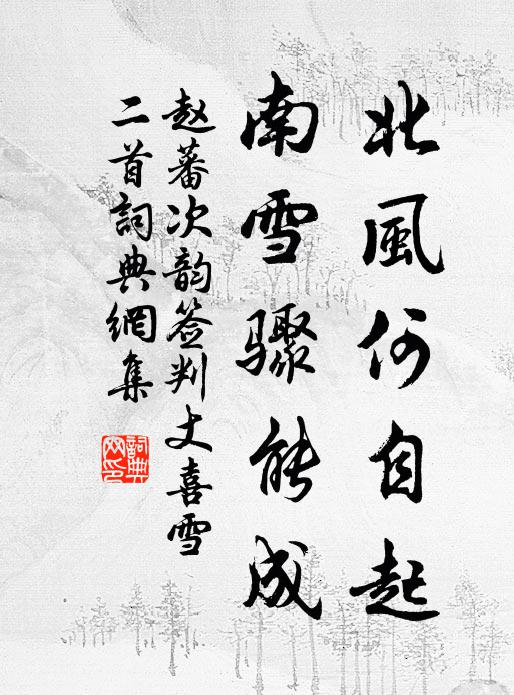 北風何自起
南雪驟能成
赵蕃次韵签判丈喜雪
二首詞典網集
詞典网印